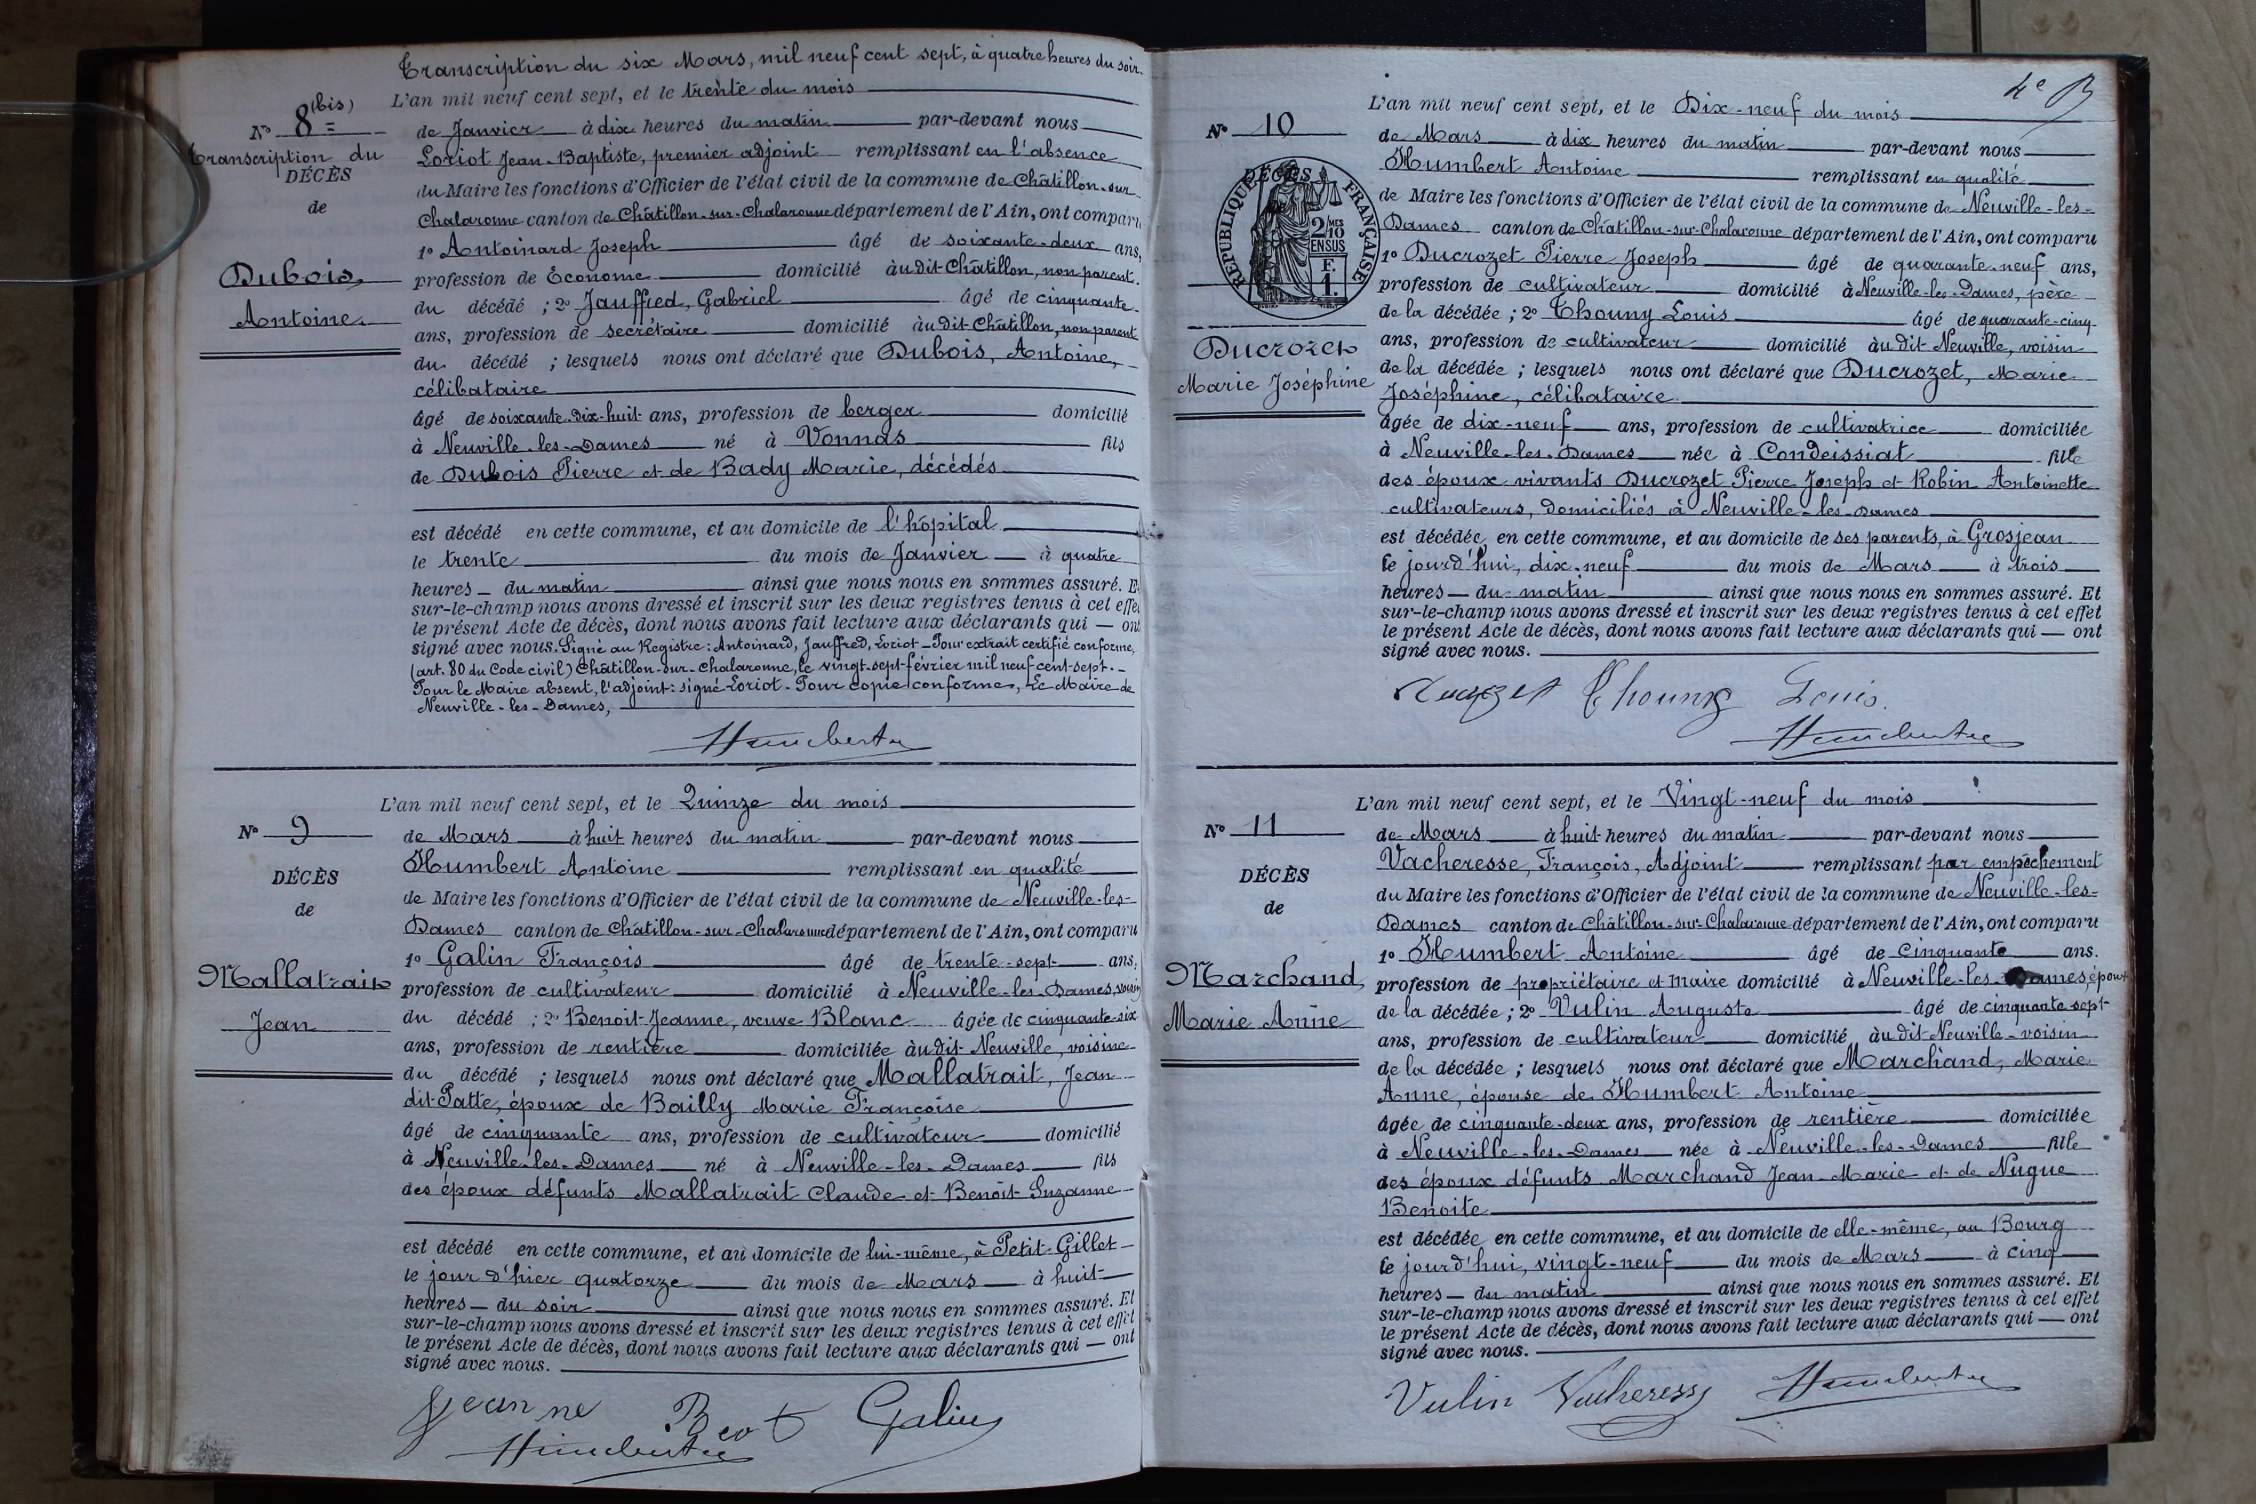 Transcription du six Mars, mil neuf cent sept, à quatre heures du soir.
N° 8 (bis)
Transcription du
DÉCÈS
de
Dubois,
Antoine.
L'an mil neuf cent sept, et le trente du mois
de Janvier à dix heures du matin par-devant nous
Loriot Jean-Baptiste, premier adjoint remplissant en l'absence
du Maire les fonctions d'Officier de l'état civil de la commune de Châtillon-sur-
Chalaronne canton de Châtillon-sur-Chalaronne département de l'Ain, ont comparu
1° Antoinard Joseph âgé de soixante-deux ans,
profession de Économe domicilié àudit Châtillon, non parent.
du décédé ; 2° Jauffred, Gabriel âgé de cinquante-
ans, profession de secrétaire domicilié àudit Châtillon, non parent
du décédé ; lesquels nous ont déclaré que Dubois, Antoine,
célibataire
âgé de soixante-dix-huit ans, profession de berger domicilié
à Neuville-les-Dames né à Vonnas fils
de Dubois Pierre et de Bady Marie, décédés
est décédé en cette commune, et au domicile de l'hôpital
le trente du mois de Janvier à quatre
heures du matin ainsi que nous nous en sommes assuré. E
sur-le-champ nous avons dressé et inscrit sur les deux registres tenus à cet effet
le présent Acte de décès, dont nous avons fait lecture aux déclarants qui — ont
signé avec nous. Signé au Registre: Antoinard, Jauffred, Loriot – Pour extrait certifié conforme,
(art. 80 du Code civil) Châtillon-sur-Chalaronne, le vingt-sept février mil neuf cent sept. –
Pour le Maire absent, l'adjoint: signé Loriot – Pour copie conforme, Le Maire de
Neuville-les-Dames,
Humbert
N° 9
DÉCÈS
de
Mallatrait
Jean
L'an mil neuf cent sept, et le Quinze du mois
de Mars à huit heures du matin par-devant nous
Humbert Antoine remplissant en qualité
de Maire les fonctions d'Officier de l'état civil de la commune de Neuville-les-
Dames canton de Châtillon-sur-Chalaronne département de l'Ain, ont comparu
1° Galin François âgé de trente-sept ans,
profession de cultivateur domicilié à Neuville-les-Dames, voisin
du décédé ; 2° Benoit Jeanne, veuve Blanc âgée de cinquante-six
ans, profession de rentière domiciliée àudit Neuville, voisine
du décédé ; lesquels nous ont déclaré que Mallatrait, Jean
dit Patte, époux de Bailly Marie Françoise
âgé de cinquante ans, profession de cultivateur domicilié
à Neuville-les-Dames né à Neuville-les-Dames fils
des époux défunts Mallatrait Claude et Benoît Suzanne
est décédé en cette commune, et au domicile de lui-même, à Petit-Gillet
le jour d'hier quatorze du mois de Mars à huit
heures — du soir ainsi que nous nous en sommes assuré. Et
sur-le-champ nous avons dressé et inscrit sur les deux registres tenus à cet effet
le présent Acte de décès, dont nous avons fait lecture aux déclarants qui — ont
signé avec nous.
Jeanne Galin
Humbert
4e
N° 10
DÉCÈS
RÉPUBLIQUE FRANÇAISE
2/10 MES
EN SUS
F.
1.
Ducrozet
Marie Joséphine
L'an mil neuf cent sept, et le Dix-neuf du mois
de Mars à dix heures du matin par-devant nous
Humbert Antoine remplissant en qualité
de Maire les fonctions d'Officier de l'état civil de la commune de Neuville-les-
Dames canton de Châtillon-sur-Chalaronne département de l'Ain, ont comparu
1° Ducrozet Pierre Joseph âgé de quarante-neuf ans,
profession de cultivateur domicilié à Neuville-les-Dames, père
de la décédée ; 2° Thouny Louis âgé de quarante-cinq-
ans, profession de cultivateur domicilié àudit Neuville, voisin
de la décédée ; lesquels nous ont déclaré que Ducrozet, Marie
Joséphine, célibataire
âgée de dix-neuf ans, profession de cultivatrice domiciliée
à Neuville-les-Dames née à Condeissiat fille
des époux vivants Ducrozet Pierre Joseph et Robin Antoinette
cultivateurs, domiciliés à Neuville-les-Dames
est décédée en cette commune, et au domicile de ses parents, à Grosjean
le jourd'hui, dix-neuf du mois de Mars à trois
heures — du matin ainsi que nous nous en sommes assuré. Et
sur-le-champ nous avons dressé et inscrit sur les deux registres tenus à cet effet
le présent Acte de décès, dont nous avons fait lecture aux déclarants qui — ont
signé avec nous.
Thouny Louis.
Humbert
N° 11
DÉCÈS
de
Marchand,
Marie Anne
L'an mil neuf cent sept, et le Vingt-neuf du mois
de Mars à huit heures du matin par-devant nous
Vacheresse, François, Adjoint remplissant par empêchement
du Maire les fonctions d'Officier de l'état civil de la commune de Neuville-les-
Dames canton de Châtillon-sur-Chalaronne département de l'Ain, ont comparu
1° Humbert Antoine âgé de Cinquante ans.
profession de propriétaire et Maire domicilié à Neuville-les-Dames, époux
de la décédée ; 2° Vulin Auguste âgé de cinquante sept
ans, profession de cultivateur domicilié àudit Neuville-voisin
de la décédée ; lesquels nous ont déclaré que Marchand, Marie
Anne, épouse de Humbert Antoine
âgée de cinquante-deux ans, profession de rentière domiciliée
à Neuville-les-Dames née à Neuville-les-Dames fille
des époux défunts Marchand Jean Marie et de Nugue
Benoite
est décédée en cette commune, et au domicile de elle-même, au Bourg
le jourd'hui, vingt-neuf du mois de Mars à cinq
heures — du matin ainsi que nous nous en sommes assuré. Et
sur-le-champ nous avons dressé et inscrit sur les deux registres tenus à cet effet
le présent Acte de décès, dont nous avons fait lecture aux déclarants qui — ont
signé avec nous.
Vulin Vacheresse Humbert